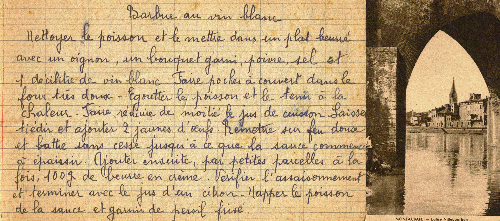 Barbue au vin blanc
Nettoyer le poisson et le mettre dans un plat beurré
avec un oignon, un bouquet garni, poivre, sel et
1 décilitre de vin blanc. Faire pocher à couvert dans le
four très doux. Egoutter le poisson et le tenir à la
chaleur. Faire réduire de moitié le jus de cuisson. Laisser
tiédir et ajouter 2 jaunes d'œufs. Remettre sur feu doux
et battre sans cesse jusqu'à ce que la sauce commence
à épaissir. Ajouter ensuite, par petites parcelles à la
fois, 100g de beurre en crème. Vérifier l'assaisonnement
et terminer avec le jus d'un citron. Napper le poisson
de la sauce et garnir de persil frisé